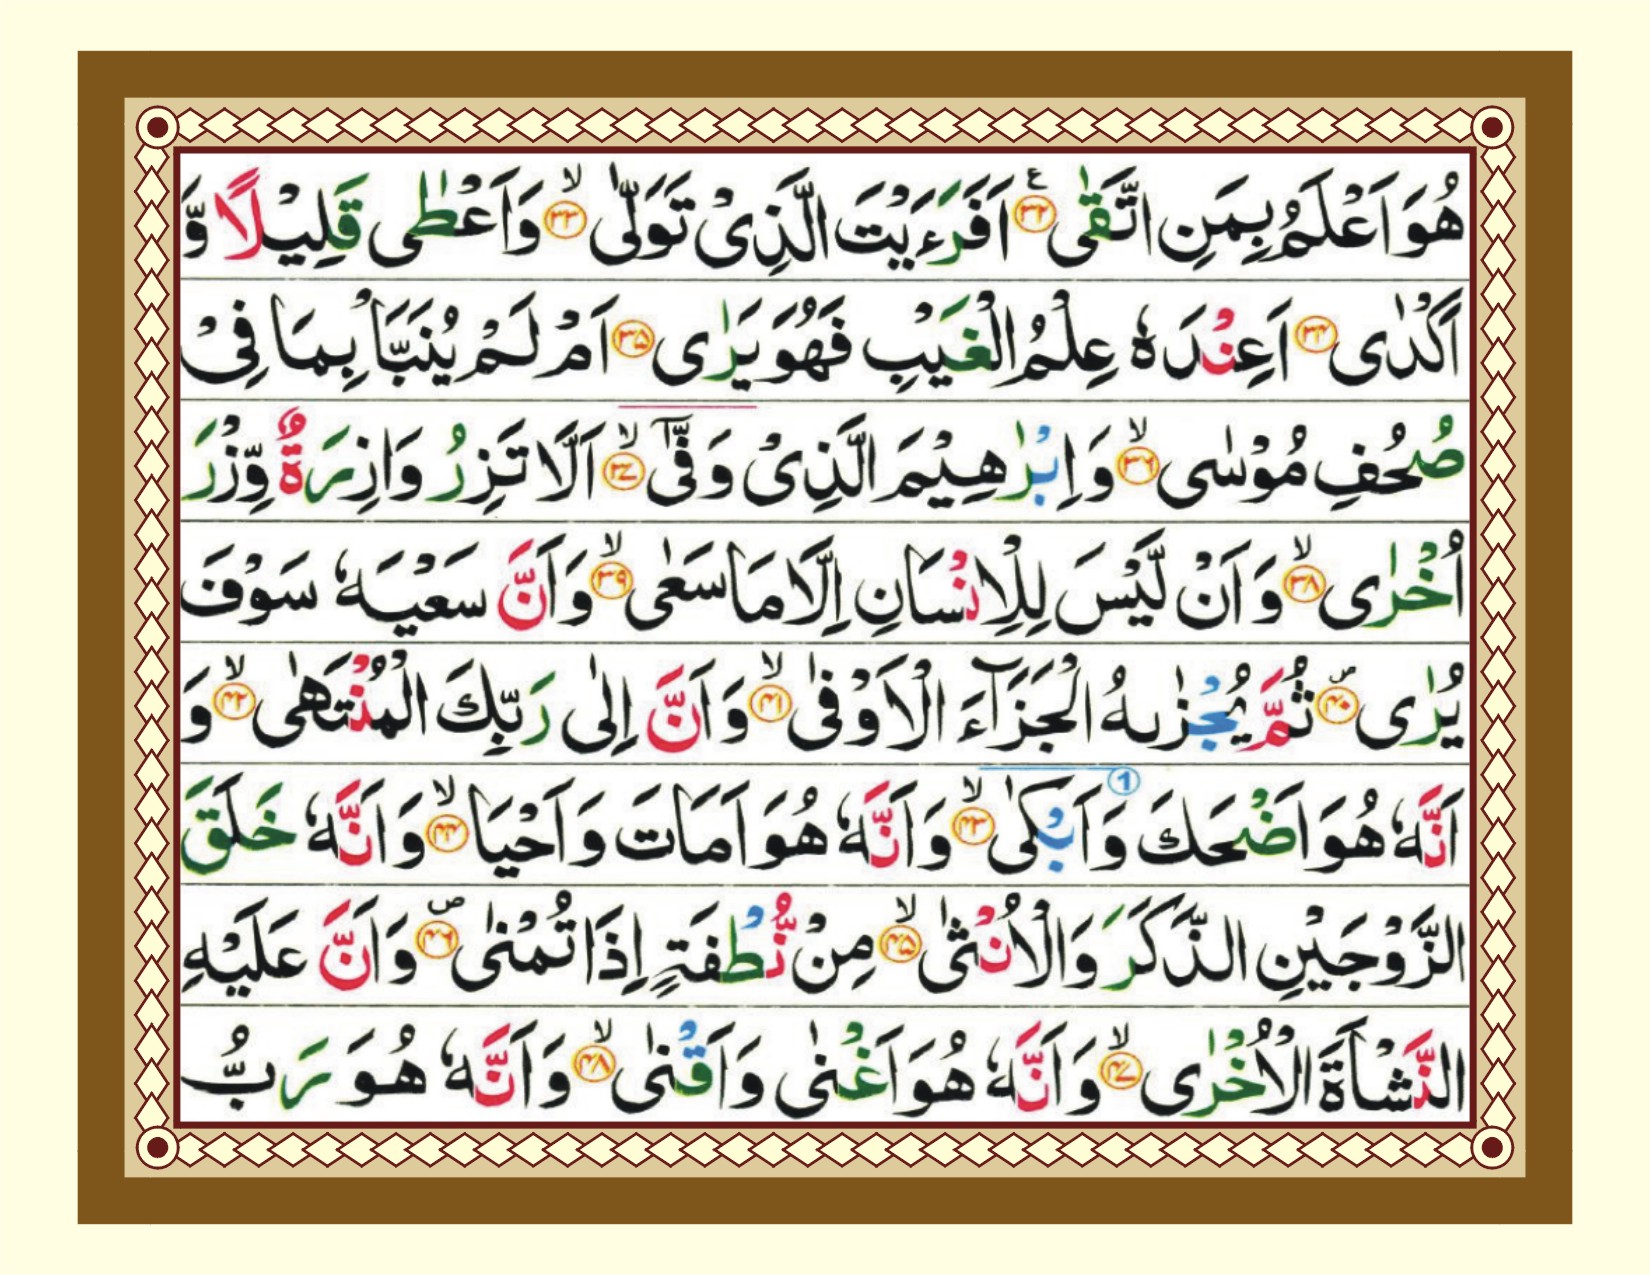 هُوَ اَعْلَمُ بِمَنِ اتَّقٰى ع ﴿۳۲﴾ اَفَرَءَيْتَ الَّذِىْ تَوَلّٰى ۙ﴿۳۳﴾ وَاَعْطٰى قَلِيْلًا وَّ
اَكْدٰى ﴿۳۴﴾ اَعِنْدَهٗ عِلْمُ الْغَيْبِ فَهُوَ يَرٰى ﴿۳۵﴾ اَمْ لَمْ يُنَبَّاْ بِمَا فِىْ
صُحُفِ مُوْسٰى ۙ﴿۳۶﴾ وَاِبْرٰهِيْمَ الَّذِىْ وَفّٰىٓ ۙ﴿۳۷﴾ اَلَّا تَزِرُ وَازِرَةٌ وِّزْرَ
اُخْرٰى ۙ﴿۳۸﴾ وَاَنْ لَّيْسَ لِلْاِنْسَانِ اِلَّا مَا سَعٰى ۙ﴿۳۹﴾ وَاَنَّ سَعْيَهٗ سَوْفَ
يُرٰى ۖ﴿۴۰﴾ ثُمَّ يُجْزٰىهُ الْجَزَآءَ الْاَوْفٰى ۙ﴿۴۱﴾ وَاَنَّ اِلٰى رَبِّكَ الْمُنْتَهٰى ۙ﴿۴۲﴾ وَ
اَنَّهٗ هُوَ اَضْحَكَ وَاَبْكٰى 1 ۙ﴿۴۳﴾ وَاَنَّهٗ هُوَ اَمَاتَ وَاَحْيَا ۙ﴿۴۴﴾ وَاَنَّهٗ خَلَقَ
الزَّوْجَيْنِ الذَّكَرَ وَالْاُنْثٰى ۙ﴿۴۵﴾ مِنْ نُّطْفَةٍ اِذَا تُمْنٰى ۖ﴿۴۶﴾ وَاَنَّ عَلَيْهِ
النَّشْاَةَ الْاُخْرٰى ۙ﴿۴۷﴾ وَاَنَّهٗ هُوَ اَغْنٰى وَاَقْنٰى ۙ﴿۴۸﴾ وَاَنَّهٗ هُوَ رَبُّ